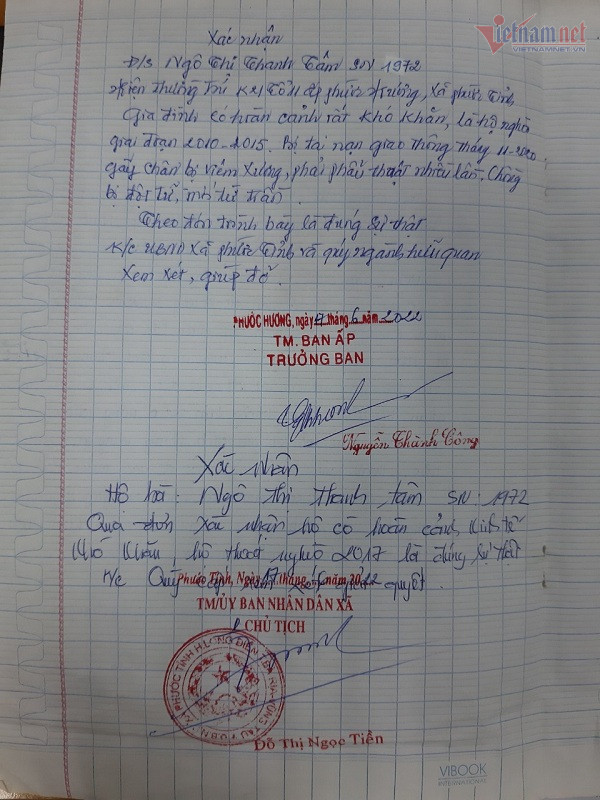 vietnamnet
VIETNAMNET.VN
Xác nhận
Đ/S Ngô Thị Thanh Tâm SN 1972
Hiện thường trú tổ 11 ấp phước Hương, xã phước Tỉnh
Gia đình có hoàn cảnh rất khó khăn, là hộ nghèo
giai đoạn 2010-2015. Bị tai nạn giao thông tháng 11-2020
gãy chân bị viêm xương, phải phẩu thuật nhiều lần. Chồng
bị đột tử, mới từ trần.
Theo đơn trình bày là đúng sự thật
K/c UBND xã phước Tỉnh và quý ngành hữu quan
xem xét, giúp đỡ.
PHƯỚC HƯƠNG, ngày 9 tháng 6 năm 2022
TM. BAN ẤP
TRƯỞNG BAN
Nguyễn Thành Công
Xác nhận
Hộ bà: Ngô thị thanh tâm SN: 1972
Qua đơn xác nhận hộ có hoàn cảnh kinh tế
khó khăn, hộ thoát nghèo 2017 là đúng sự thật
K/c Quý quyết.
Phước Tỉnh, Ngày 17 tháng 6 năm 2022
TM/ỦY BAN NHÂN DÂN XÃ
CHỦ TỊCH
Đỗ Thị Ngọc Tiền
VIBOOK